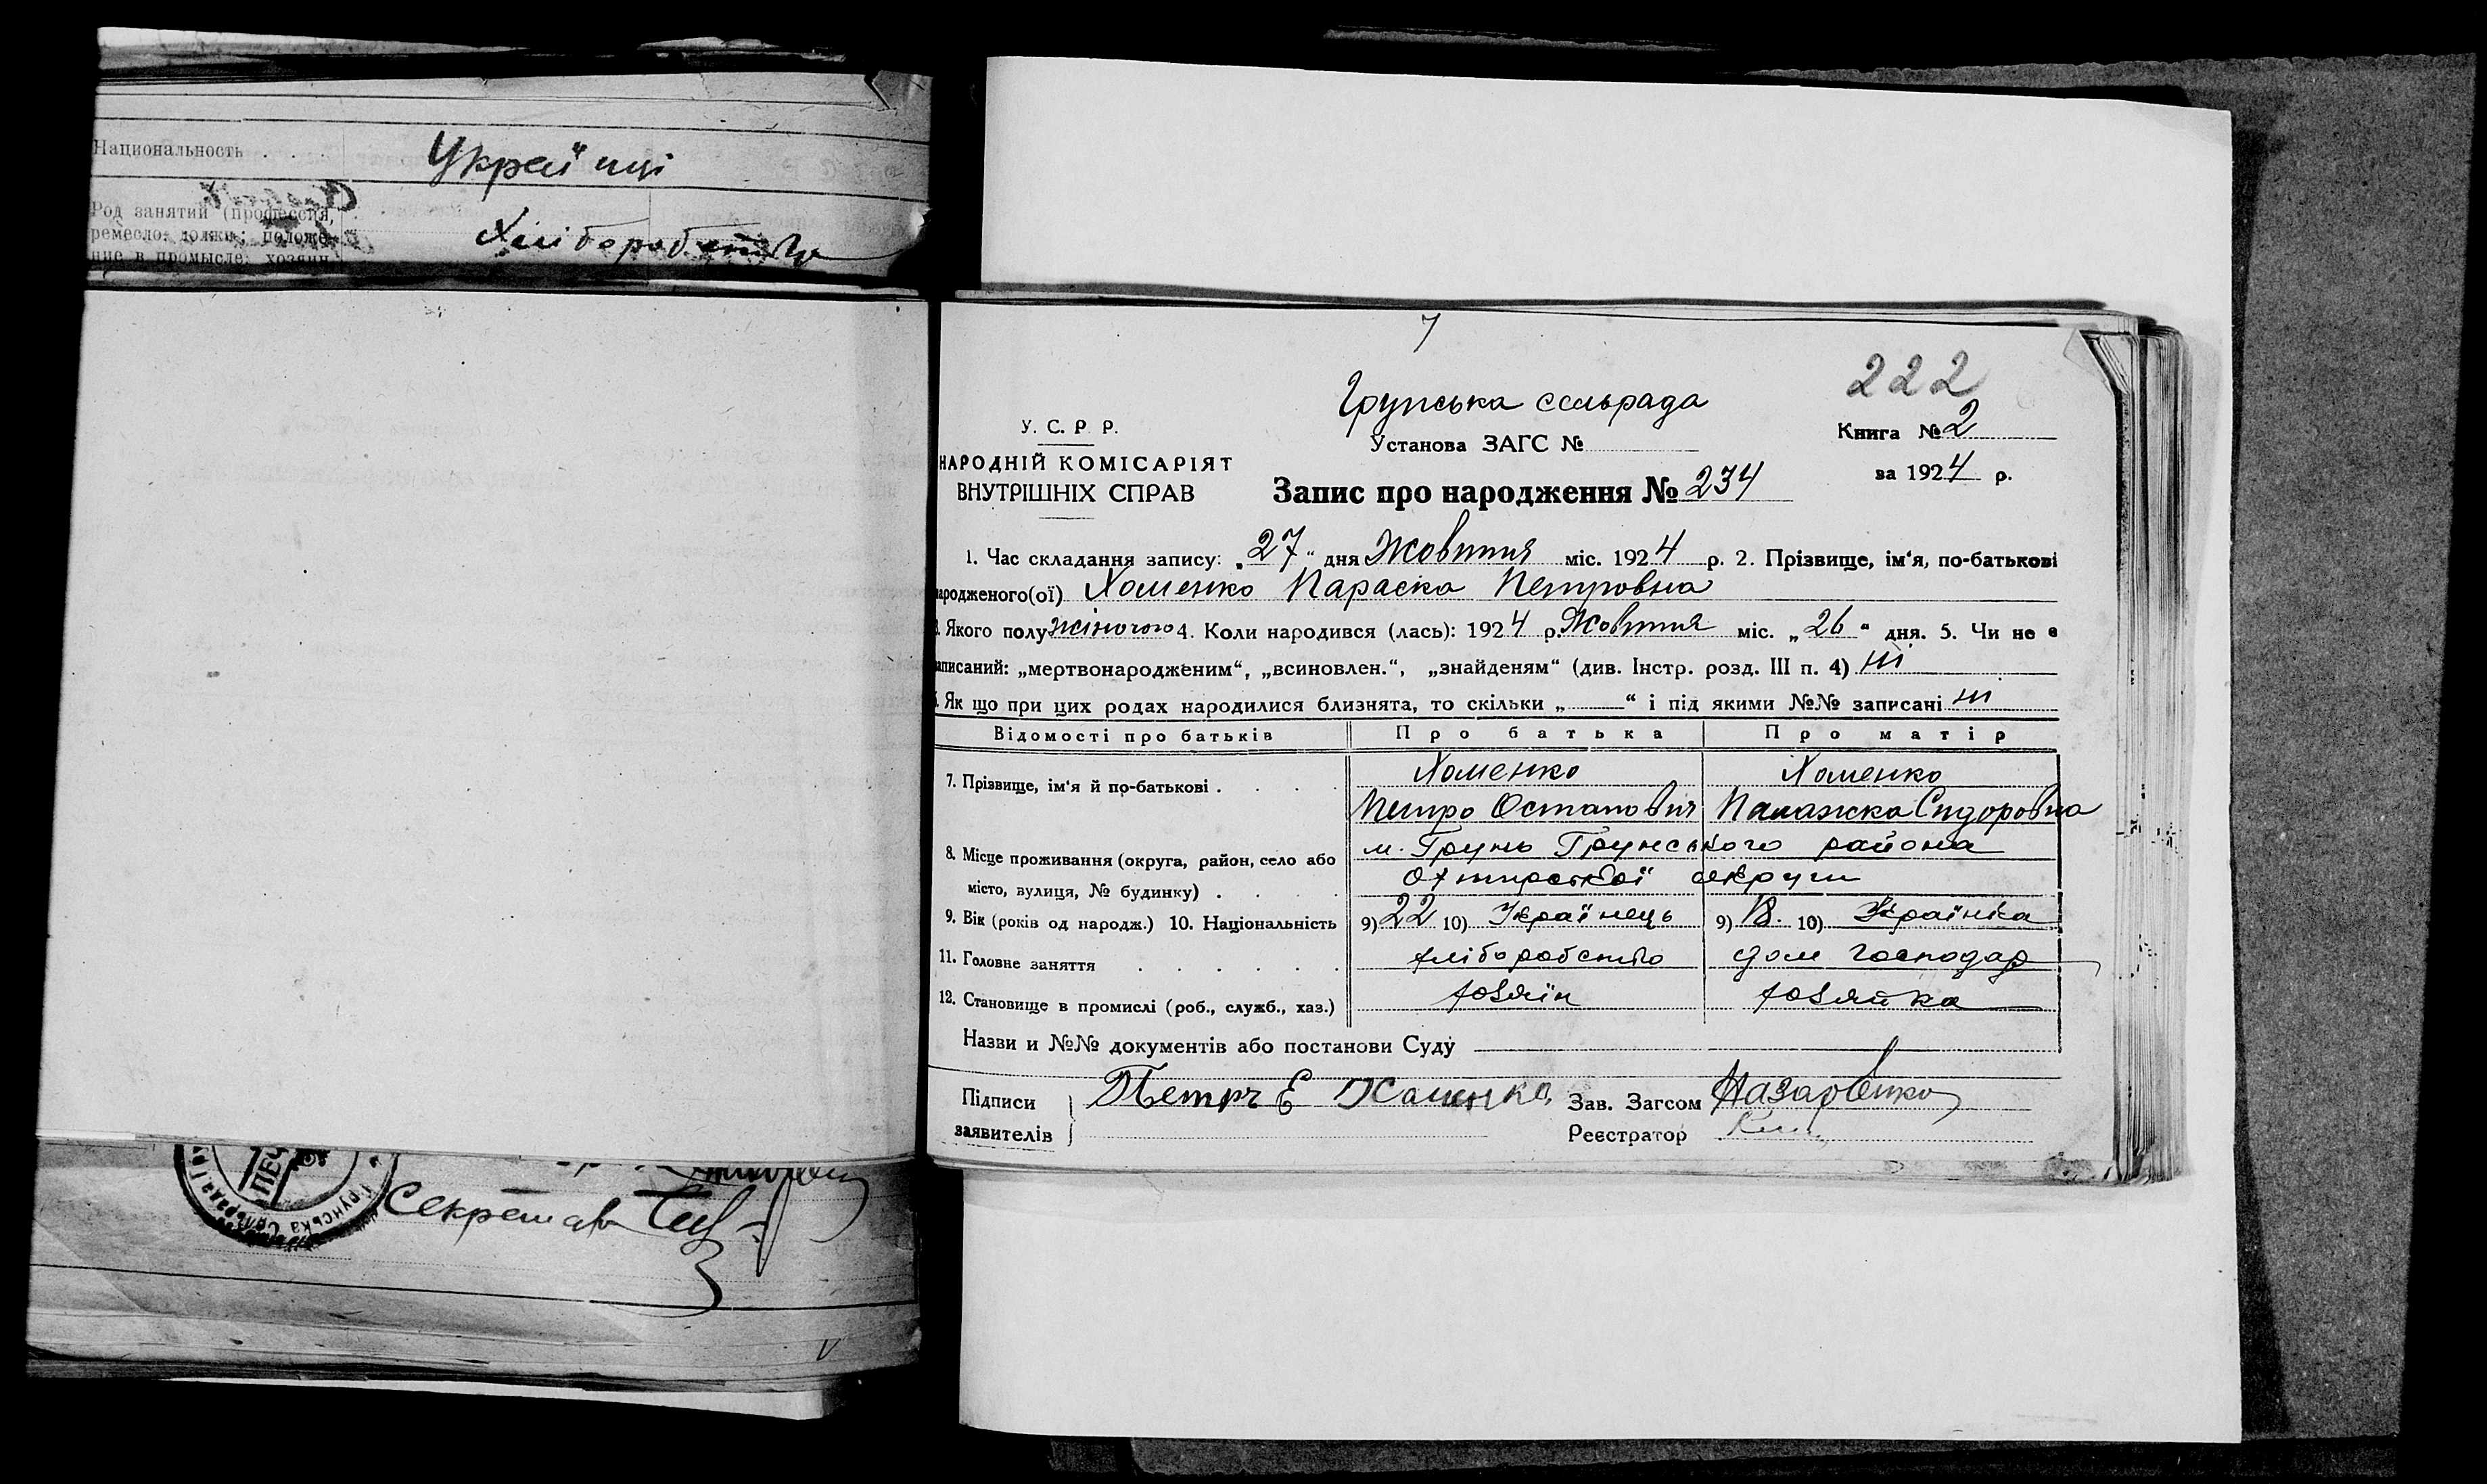 Национальность . . .
Українці
Род занятий (профессия,
ремесло, должн; положе-
ние в промысле: хозяин
Хліборобство
7
222
Грунська сельрада
У. С. Р Р.
Установа ЗАГС №
Книга № 2
НАРОДНІЙ КОМІСАРІЯТ
ВНУТРІШНІХ СПРАВ
Запис про народження № 234
за 1924 р.
1. Час складання запису: „27“ дня Жовтня міс. 1924 р. 2. Прізвище, ім‘я, по-батькові
народженого(ої) Хоменко Параска Петровна
3. Якого полу жіночого 4. Коли народився (лась): 1924 р. Жовтня міс. „26“ дня. 5. Чи не є
записаний: „мертвонародженим“, „всиновлен.“, „знайденям“ (див. Інстр. розд. III п. 4) ні
6. Як що при цих родах народилися близнята, то скільки „ “ і під якими №№ записані ні
Відомості про батьків Про батька Про матір
7. Прізвище, ім‘я й по-батькові . . . .
Хоменко Хоменко
Петро Остапович Палажка Сидоровна
8. Місце проживання (округа, район, село або
місто, вулиця, № будинку) . . . .
м. Грунь Грунського района
Охтирської округи
9. Вік (років од народж.) 10. Національність 9) 22 10) Українець 9) 18 10) Українка
11. Головне заняття . . . . . . хліборобство дом господар
12. Становище в промислі (роб., служб., хаз.) хозяїн хозяйка
Назви и №№ документів або постанови Суду
Підписи
заявителів
Петр Е Хоменко
Зав. Загсом Назаренко
Реєстратор
ПЕЧ
Грунська Сільрада
Секретар
V